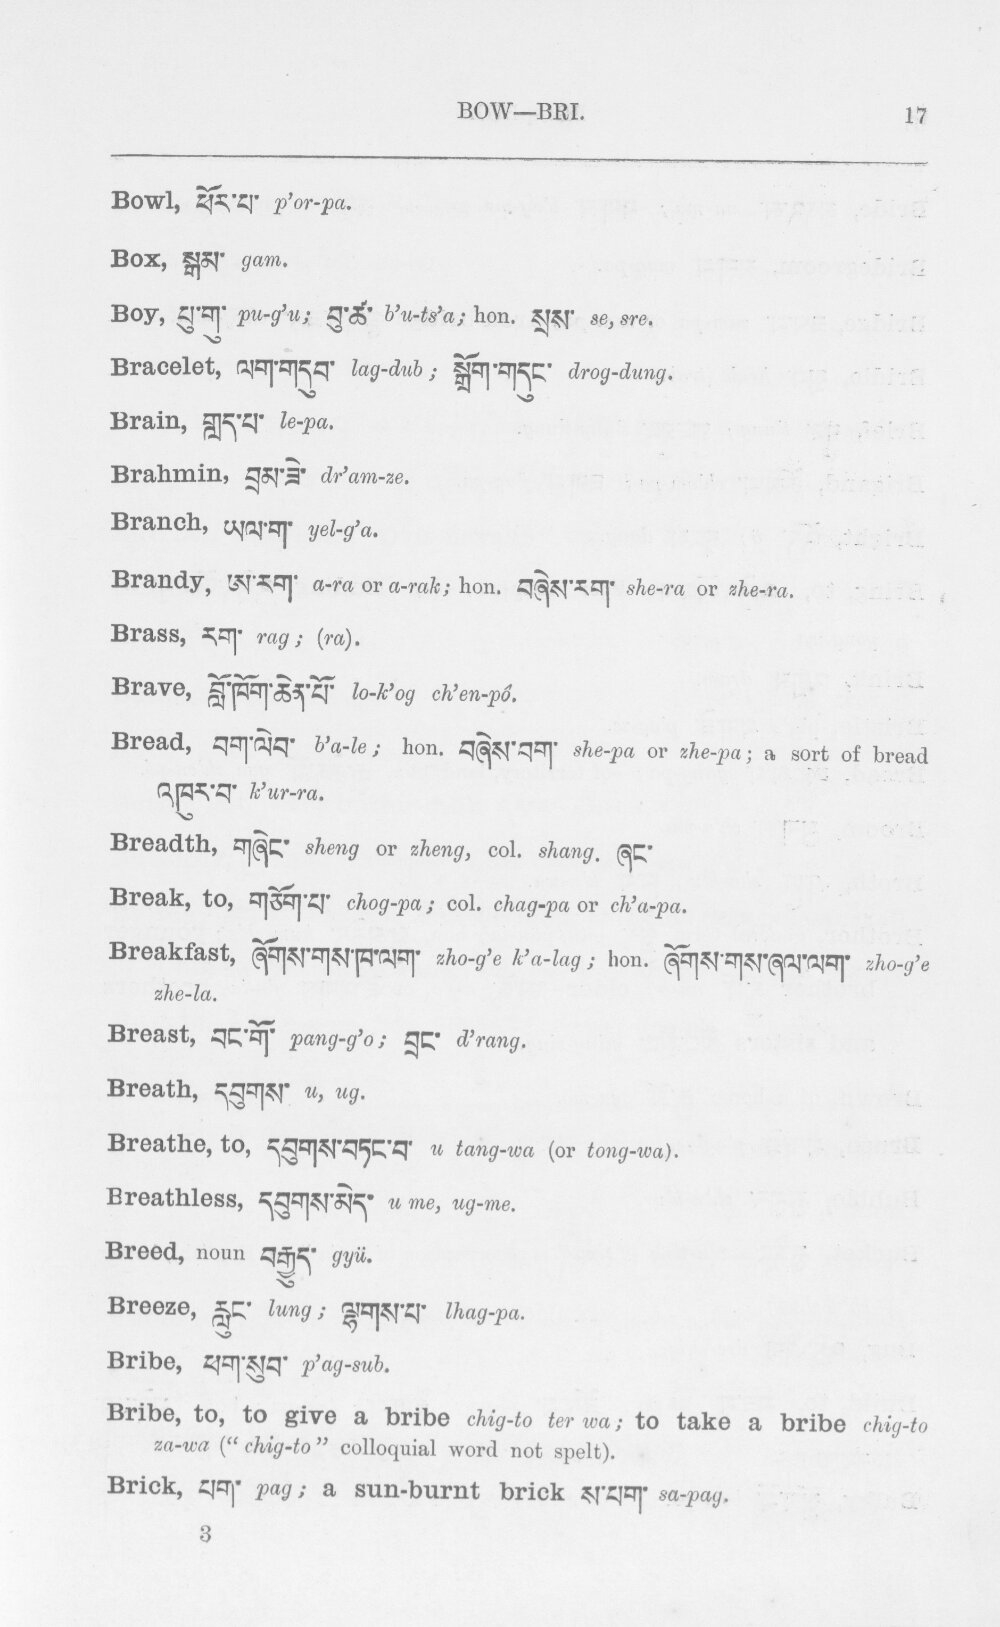 BOW—BRI.
17
Bowl, ཕོར་པ་ p’or-pa.
Box, སྒམ་ gam.
Boy, པུ་གུ་ pu-g’u; བུ་ཚ་ b’u-ts’a; hon. སྲས་ se, sre.
Bracelet, ལག་གདུབ་ lag-dub; སྒྲོག་གདུང་ drog-dung.
Brain, གླད་པ་ le-pa.
Brahmin, བྲམ་ཟེ་ dr’am-ze.
Branch, ཡལ་ག་ yel-g’a.
Brandy, ཨ་རག་ a-ra or a-rak; hon. བཞེས་རག་ she-ra or zhe-ra.
Brass, རག་ rag; (ra).
Brave, བློ་ཁོག་ཆེན་པོ་ lo-k’og ch’en-pó.
Bread, བག་ལེབ་ b’a-le; hon. བཞེས་བག་ she-pa or zhe-pa; a sort of bread
འཁུར་བ་ k’ur-ra.
Breadth, གཞེང་ sheng or zheng, col. shang. ཞང་
Break, to, གཅོག་པ་ chog-pa; col. chag-pa or ch’a-pa.
Breakfast, ཞོགས་གས་ཁ་ལག་ zho-g’e k’a-lag; hon. ཞོགས་གས་ཞལ་ལག་ zho-g’e
zhe-la.
Breast, བང་གོ་ pang-g’o; བྲང་ d’rang.
Breath, དབུགས་ u, ug.
Breathe, to, དབུགས་བཏང་བ་ u tang-wa (or tong-wa).
Breathless, དབུགས་མེད་ u me, ug-me.
Breed, noun བརྒྱུད་ gyü.
Breeze, རླུང་ lung; ལྷགས་པ་ lhag-pa.
Bribe, ཕག་སུབ་ p’ag-sub.
Bribe, to, to give a bribe chig-to ter wa; to take a bribe chig-to
za-wa (“chig-to” colloquial word not spelt).
Brick, པག་ pag; a sun-burnt brick ས་པག་ sa-pag.
3